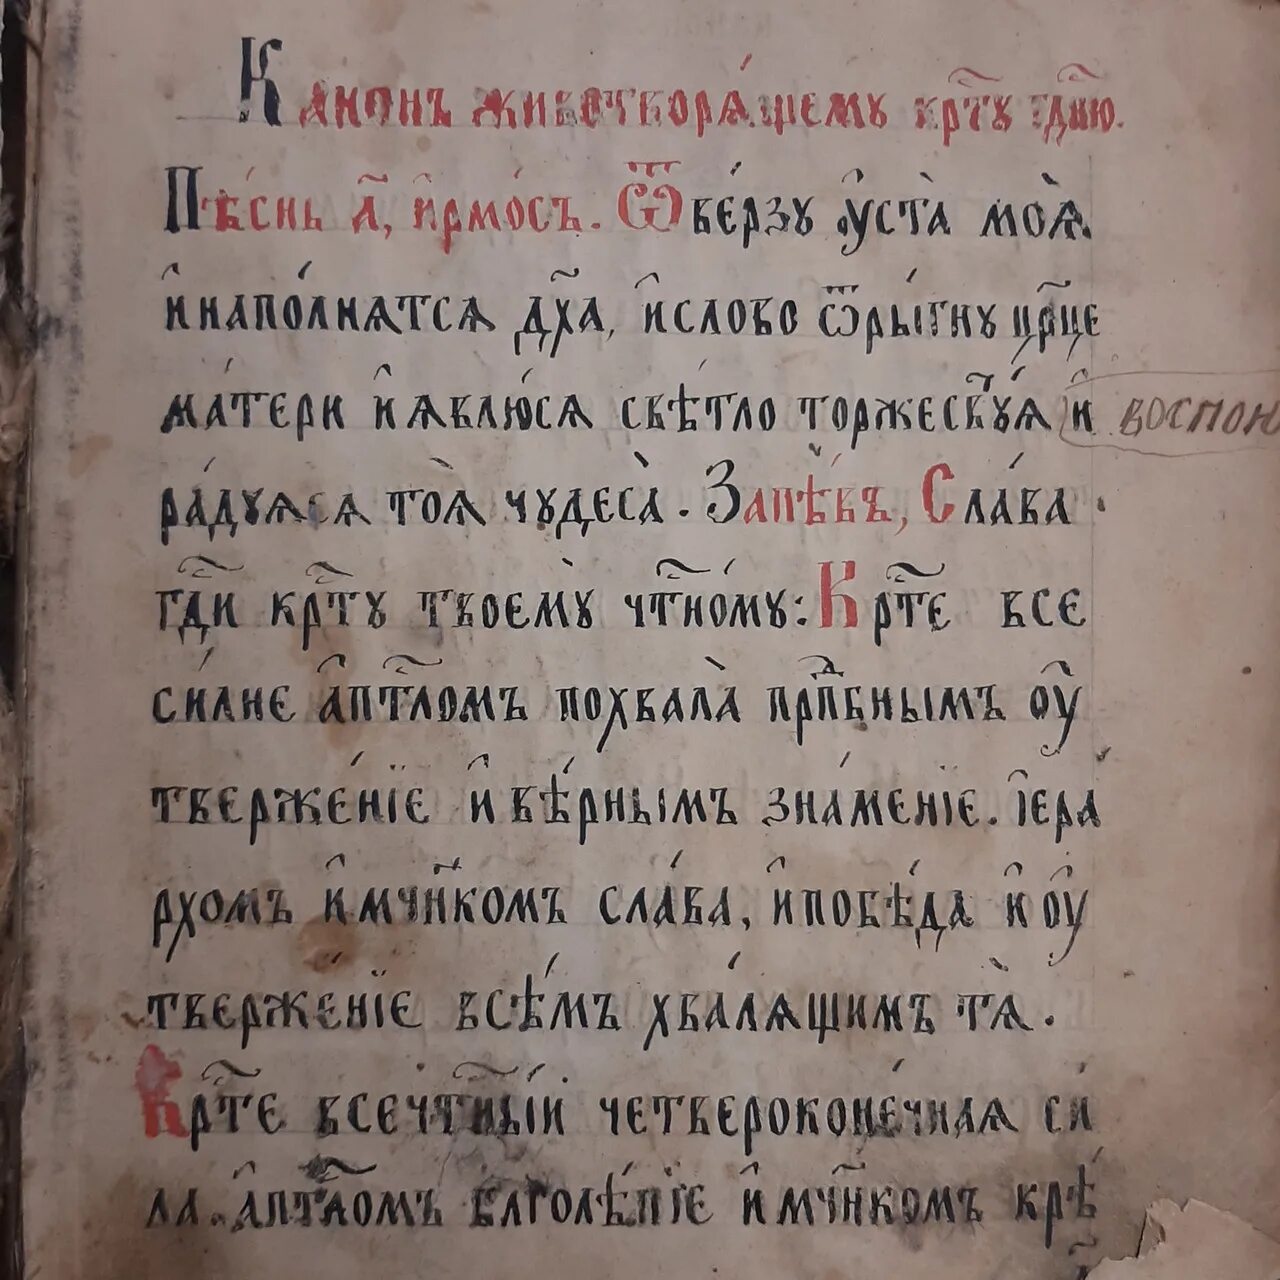 Канонъ животворѧ́щемꙋ крⷭ҇тꙋ гдⷭ҇ню.
Пѣ́снь а҃, і҆рмо́съ. Ѿве́рзꙋ ᲂу҆ста̀ моѧ̀
и҆ напо́лнѧтсѧ дх҃а, и҆ слово ѿры́гнꙋ цр҃це
ма́тери и҆ ꙗвлю́сѧ свѣ́тло торжесⷭ҇твꙋ́ѧ и҆ воспою
ра́дꙋѧсѧ тоѧ̀ чꙋдеса̀. Запѣ́въ, Сла́ва
гдⷭ҇и крⷭ҇тꙋ твоемꙋ̀ чтⷭ҇номꙋ: Крⷭ҇те все
си́лне а҆птⷭ҇ломъ похвала̀ прпⷣбнымъ ᲂу҆
тверже́нїе и҆ вѣ́рнымъ зна́менїе. і҆ера
рхомъ и҆ мч҃нкомъ сла́ва, и҆ побѣ́да и҆ ᲂу҆
тверже́нїе всѣ́мъ хва́лѧщимъ тѧ̀.
Крⷭ҇те всечтⷭ҇ны́й четвероконе́чнаѧ си
ла. а҆птⷭ҇ломъ благолѣ́пїе и҆ мч҃нкомъ крѣ́